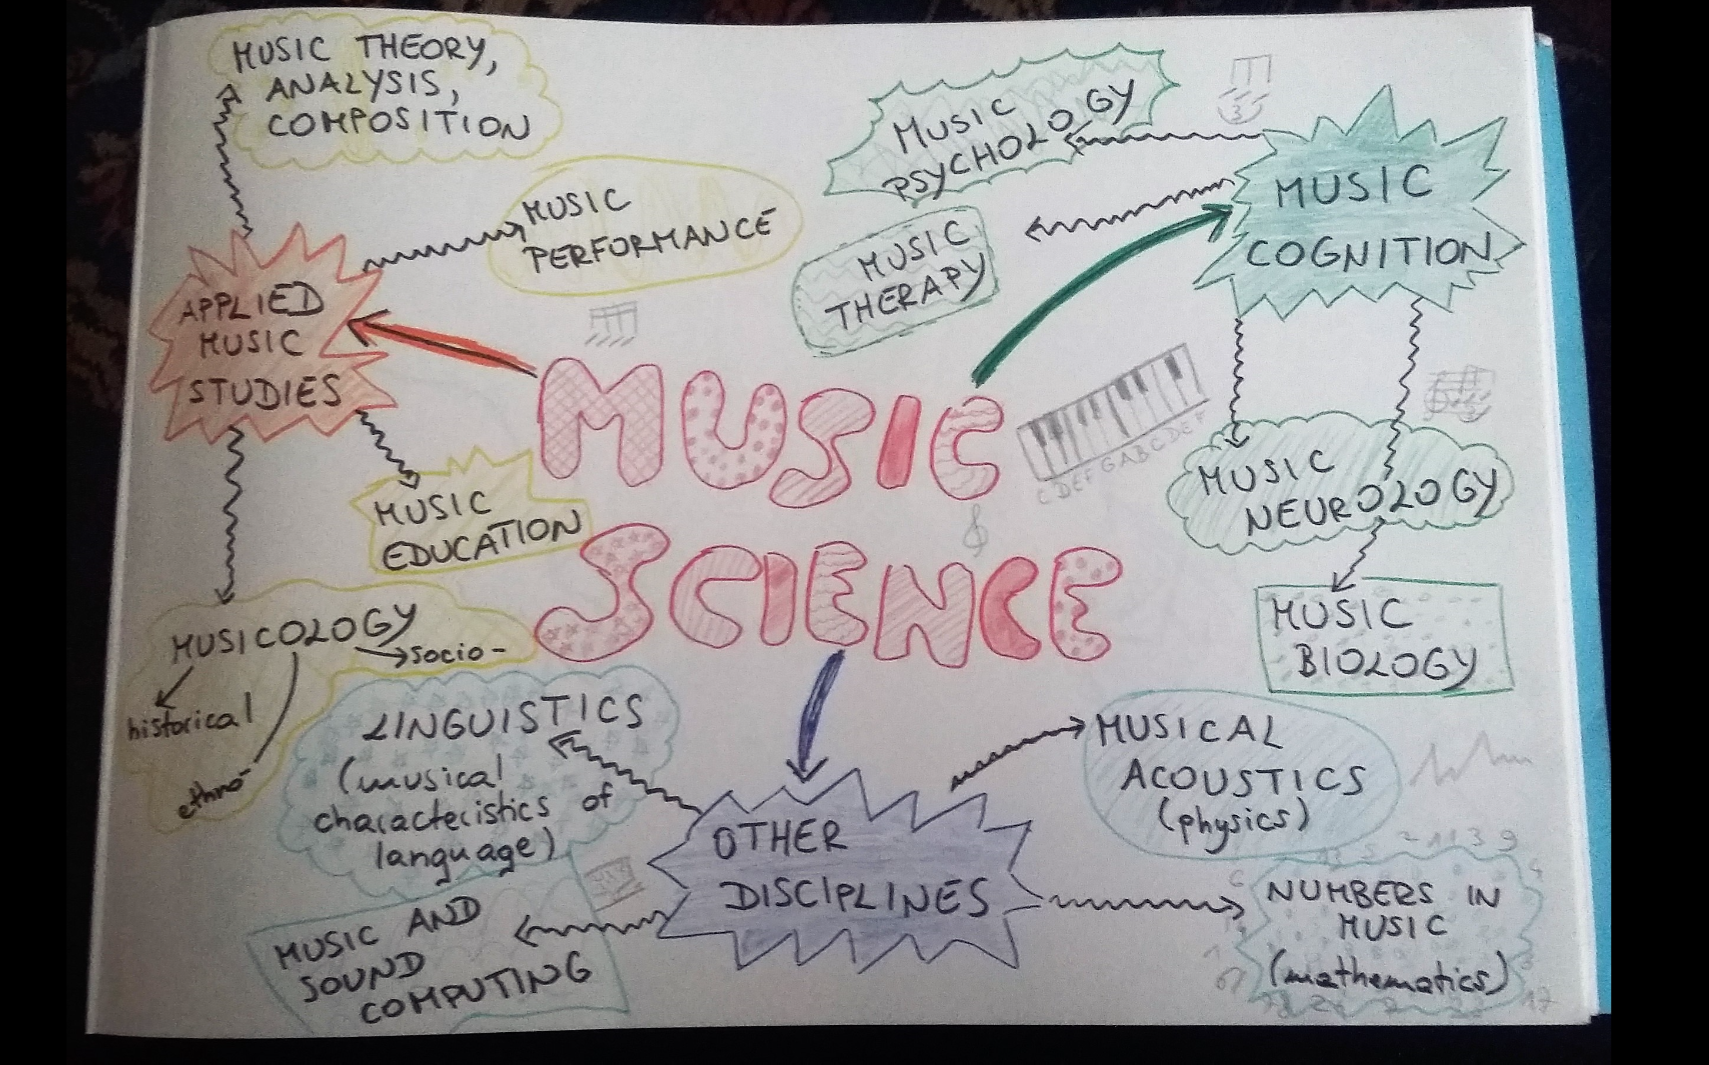 MUSIC THEORY,
ANALYSIS,
COMPOSITION
MUSIC
PERFORMANCE
APPLIED
MUSIC
STUDIES
MUSIC
EDUCATION
MUSICOLOGY
socio-
historical
ethno-
MUSIC
PSYCHOLOGY
MUSIC
THERAPY
MUSIC
COGNITION
MUSIC
NEUROLOGY
MUSIC
BIOLOGY
MUSIC
SCIENCE
C D E F G A B C D E F
LINGUISTICS
(musical
characteristics of
language)
MUSIC AND
SOUND
COMPUTING
OTHER
DISCIPLINES
MUSICAL
ACOUSTICS
(physics)
NUMBERS IN
MUSIC
(mathematics)